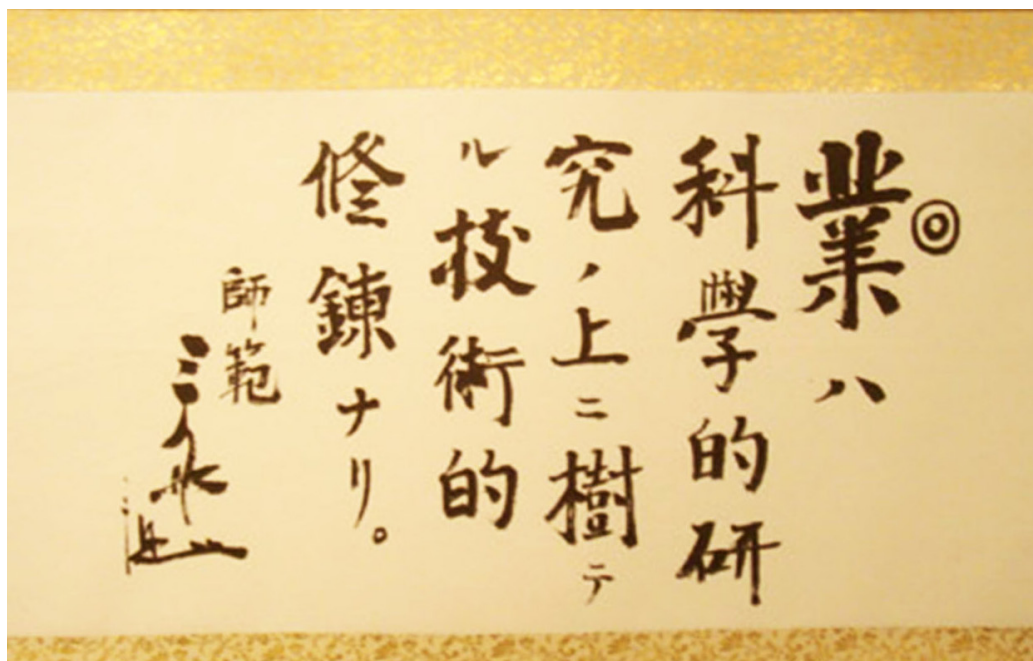 ◎業ハ
科學的研
究ノ上ニ樹テ
ル技術的
修錬ナリ。
師範